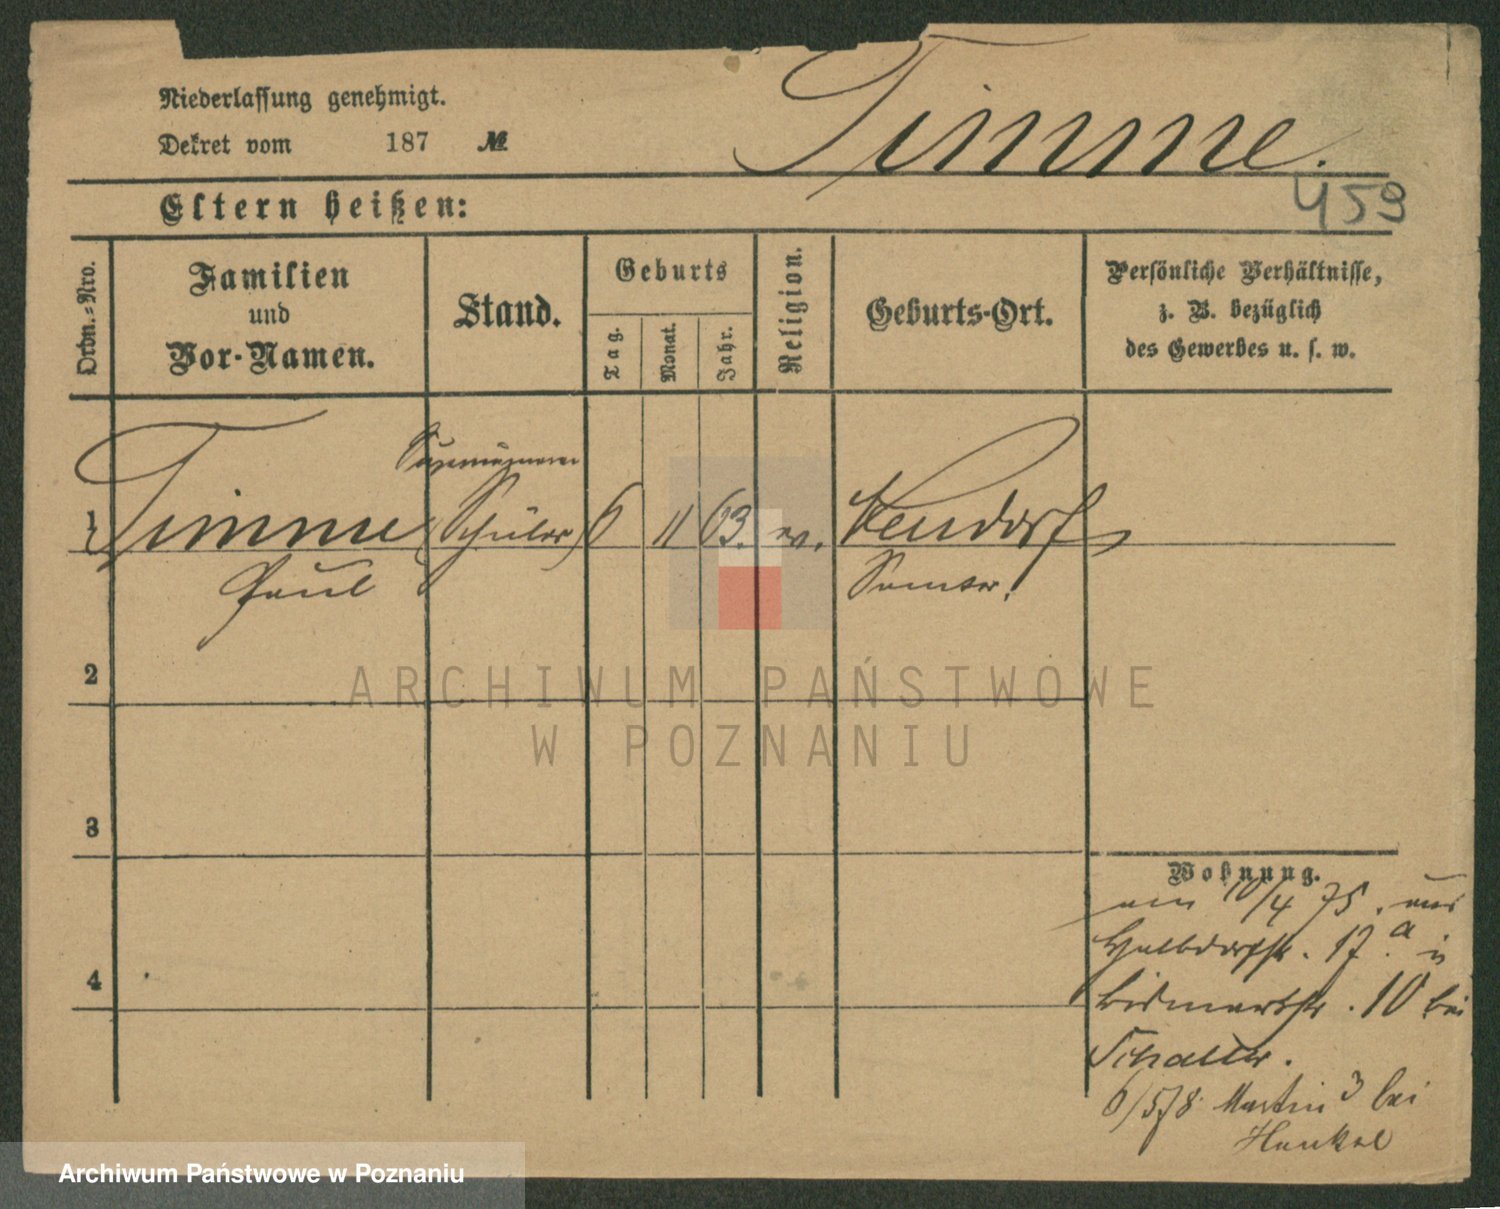 Niederlassung genehmigt.
Dekret vom 187 №
Timme.
459
Eltern heißen:
Ordn.-Nro.
Familien
und
Vor-Namen.
Stand.
Geburts
Tag.
Monat.
Jahr.
Religion.
Geburts-Ort.
Persönliche Verhältnisse,
z. B. bezüglich
des Gewerbes u. s. w.
Supernumerar
1 Timme (Schüler) 6 11 63. ev. Neudorf
Paul Samter.
2
3
4
Wohnung.
10/4 75. aus
Halbdorfstr. 17.a in
Bismarkstr. 10 bei
Schaller.
6/5 78 Martin 3 bei
Henkel
ARCHIWUM PAŃSTWOWE
W POZNANIU
Archiwum Państwowe w Poznaniu